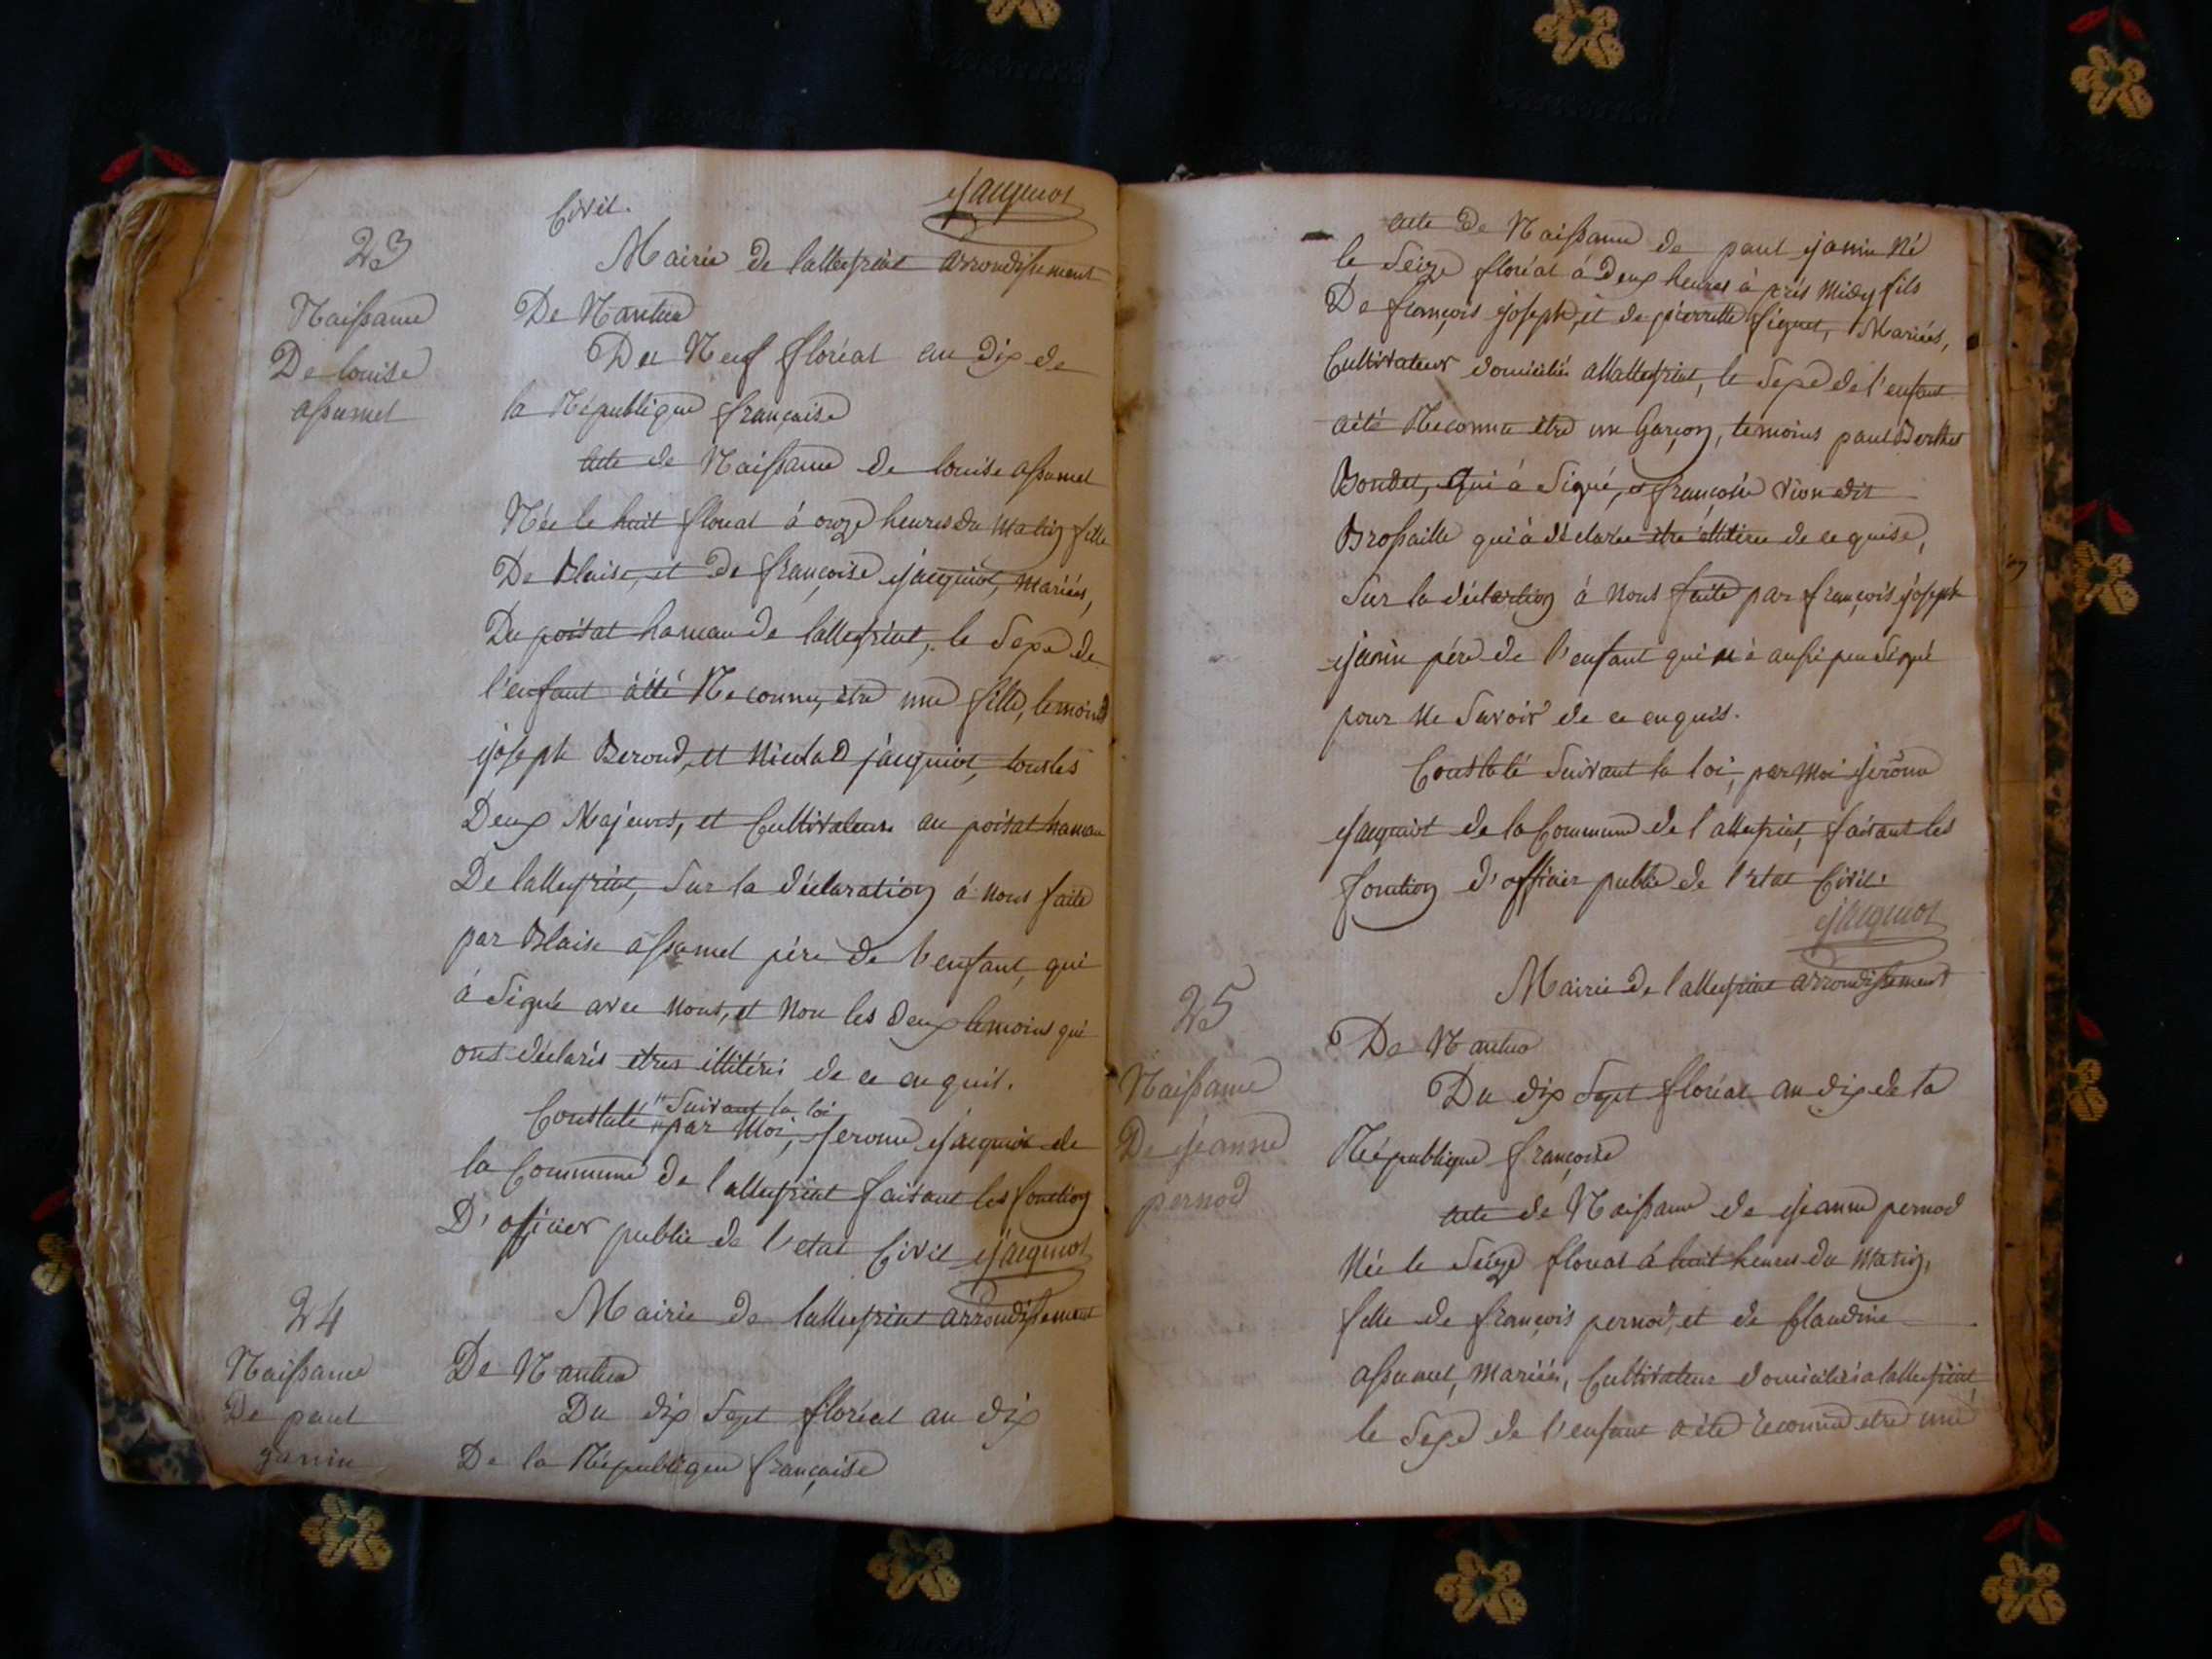 Civil. Jacquiot
23
Mairie de lalleyriat arrondissement
De Nantua
Naissance
De louise
assumel
Du Neuf floréal an dix de
la République française
acte de Naissance de louise assumel
Née le huit floréal à onze heures du matin fille
De Blaise, et de françoise jacquiot, mariés,
Du poisat hameau de lalleyriat, le Sexe de
l'enfant à été Reconnu, etre une fille, temoins
joseph Beroud, et Nicolas jacquiot, tous les
Deux Majeurs, et Cultivateurs au poisat hameau
De lalleyriat, Sur la déclaration à nous faite
par Blaise assumel père de l'enfant, qui
à Signé avec nous, et Non les deux temoins qui
ont déclarés etres illitérés de ce enquit.
Constaté "Suivant la loi" par Moi, jerome jacquiot de
la Commune de lalleyriat faisant les fonction
D'officier public de l'etat Civil Jacquiot
24
Mairie de lalleyriat arrondissement
De Nantua
Naissance
De paul
janin
Du dix Sept floréal an dix
De la République française
acte de Naissance de paul janin Né
le Seize floréal à Deux heures à près Midy fils
De françois joseph, et de pierrette Mariés,
Cultivateur domicilié allalleyriat, le Sexe de l'enfant
aété Reconnu etre un Garçon, temoins paul Berthet
Bondet, qui à Signé, et françois vion dit
Brossaille qui à déclarée etre illitérée de ce quise,
Sur la déclartion à Nous faite par françois joseph
janin père de l'enfant qui n'à aussi peu Signé
pour Ne Savoir de ce enquis.
Constaté Suivant la loi, par Moi jerôme
jacquiot de la Commune de lalleyriat, faisant les
fonction d'officier public de l'etat Civil.
Jacquiot
25
Mairie de lalleyriat arrondissement
De Nantua
Naissance
De jeanne
pernod
Du dix Sept floréal an dix de la
République françoise
acte de Naissance de jeanne pernod
Née le Seize floréal à huit heures du Matin,
fille de françois pernod, et de Claudine
assumel, Mariés, Cultivateur domiciliés alalleyriat,
le Sexe de l'enfant a été reconnu etre une